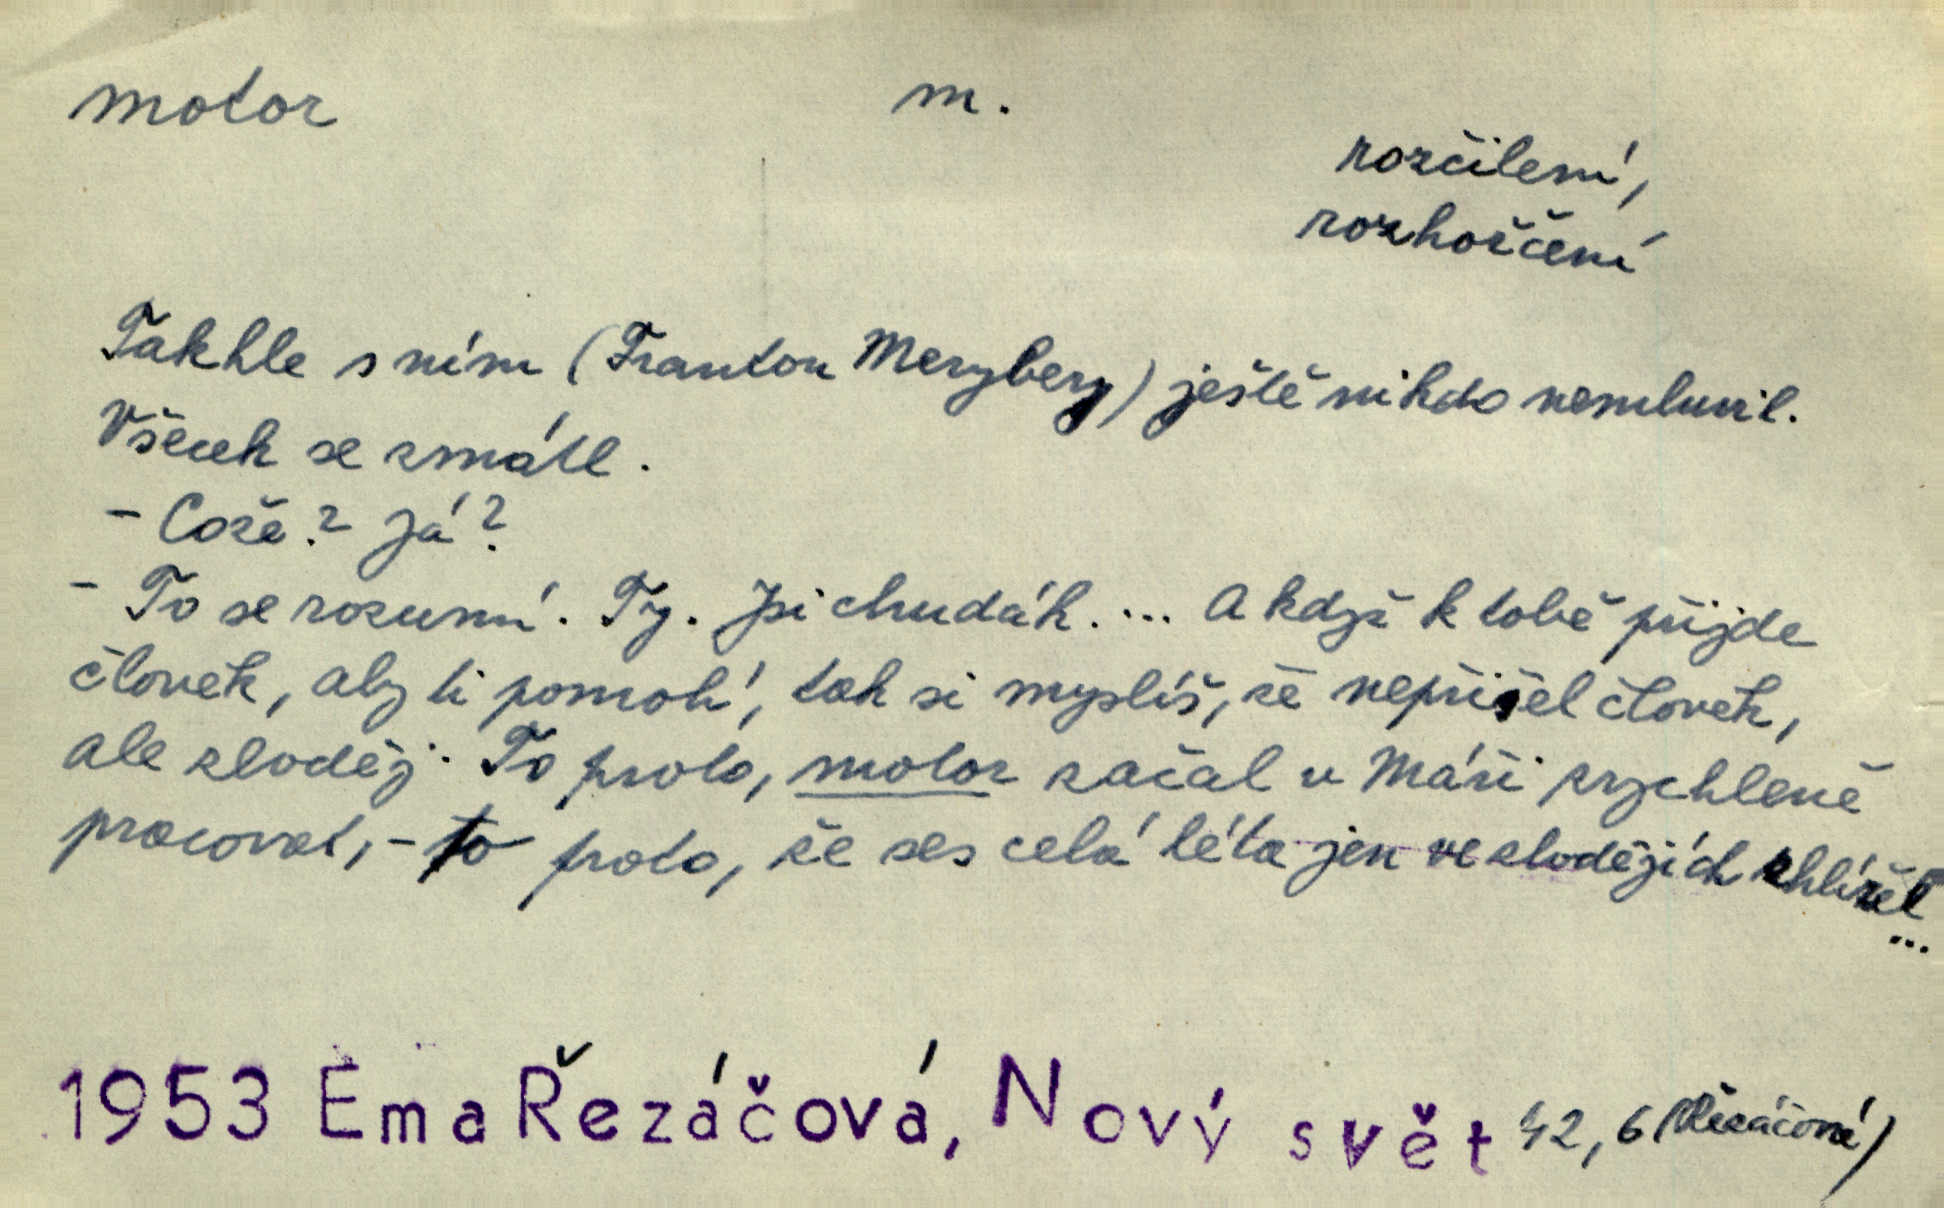 motor m.
rozčilení,
rozhořčení
Takhle s ním (Franton Meryberg) ještě nikdo nemluvil.
Všecek se zmátl.
- Cože? Já?
- To se rozumí. Ty. Jsi chudák. ... A když k tobě přijde
člověk, aby ti pomohl, tak si myslíš, že nepřišel člověk,
ale zloděj. To proto, motor začal v Máři zrychleně
pracovat, - to proto, že ses celá léta jen ve zlodějích zhlížel
...
1953 Ema Řezáčová, Nový svět 42, 6 (Řezáčová)